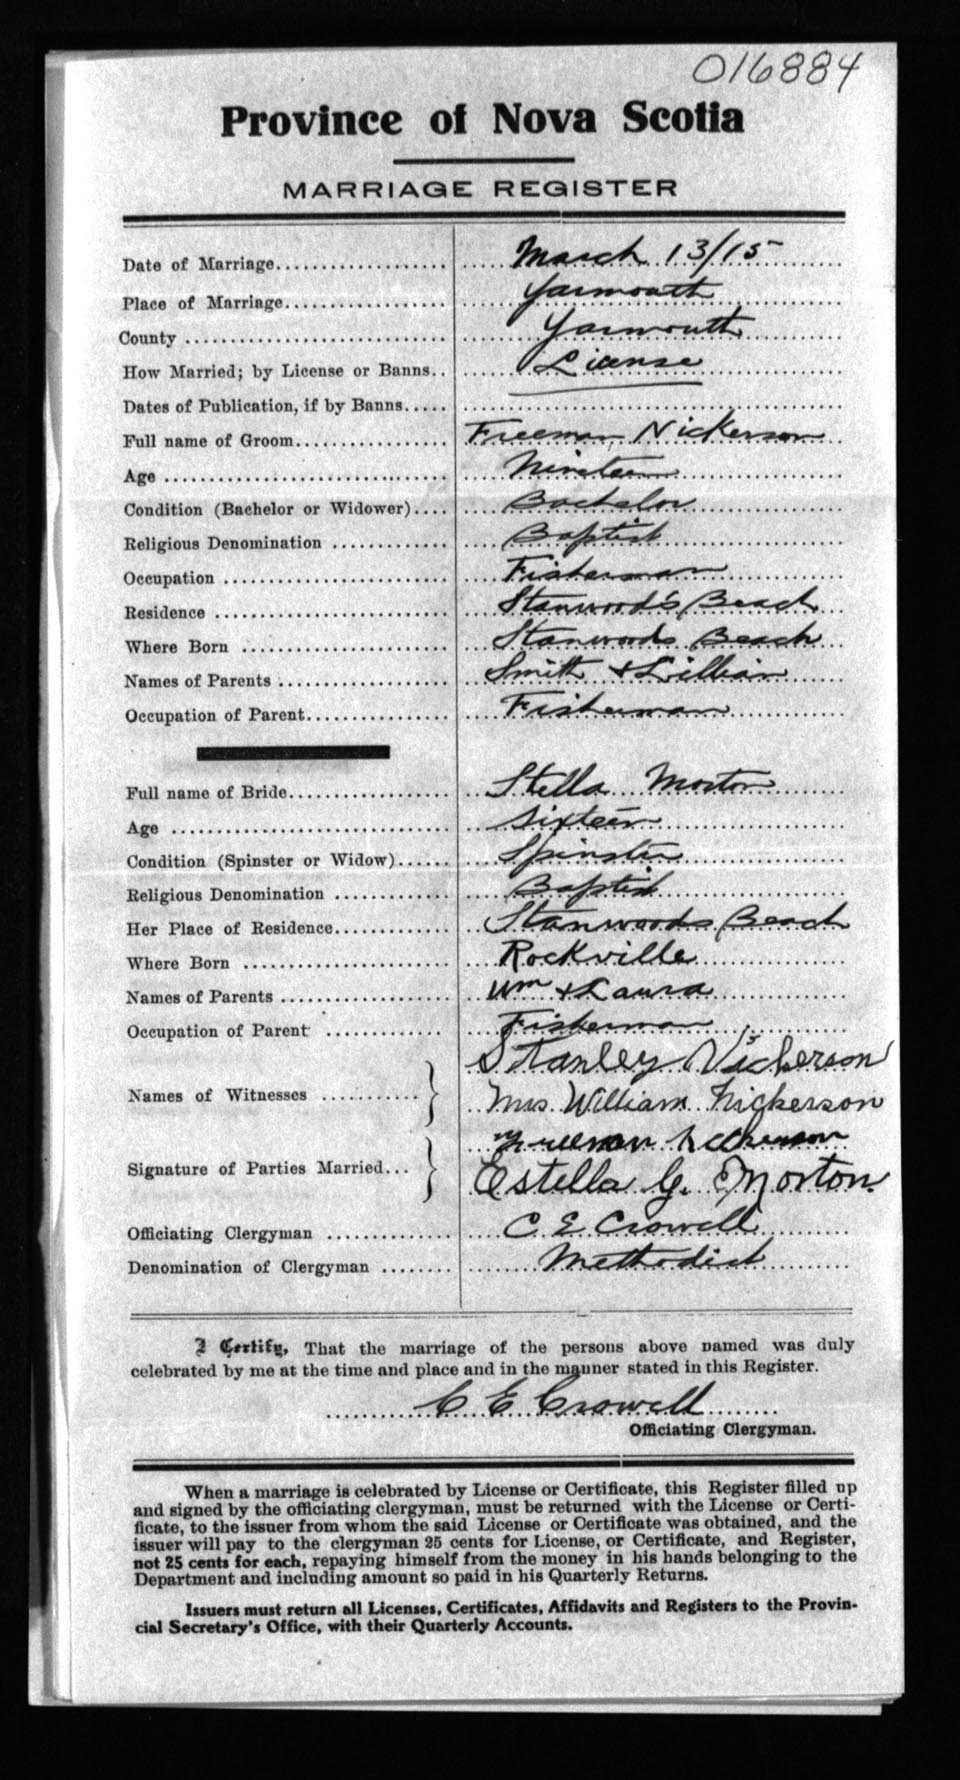 016884
Province of Nova Scotia
MARRIAGE REGISTER
Date of Marriage.................... March 13/15
Place of Marriage................... Yarmouth
County ............................. Yarmouth
How Married; by License or Banns.. License
Dates of Publication, if by Banns.....
Full name of Groom.................. Freeman Nickerson
Age ................................ Nineteen
Condition (Bachelor or Widower).... Bachelor
Religious Denomination ............. Baptist
Occupation ......................... Fisherman
Residence .......................... Stanwood's Beach
Where Born ......................... Stanwoods Beach
Names of Parents ................... Smith & Lillian
Occupation of Parent................ Fisherman
Full name of Bride.................. Stella Morton
Age ................................ Sixteen
Condition (Spinster or Widow)...... Spinster
Religious Denomination ............. Baptist
Her Place of Residence.............. Stanwoods Beach
Where Born ......................... Rockville
Names of Parents ................... Wm & Laura
Occupation of Parent ............... Fisherman
Stanley Nickerson
Names of Witnesses ...........
Mrs. William Nickerson
Freeman Nickerson
Signature of Parties Married...
Estella G. Morton
Officiating Clergyman .............. C E Crowell
Denomination of Clergyman ........ Methodist
I Certify, That the marriage of the persons above named was duly
celebrated by me at the time and place and in the manner stated in this Register.
C E Crowell
Officiating Clergyman.
When a marriage is celebrated by License or Certificate, this Register filled up
and signed by the officiating clergyman, must be returned with the License or Certi-
ficate, to the issuer from whom the said License or Certificate was obtained, and the
issuer will pay to the clergyman 25 cents for License, or Certificate, and Register,
not 25 cents for each, repaying himself from the money in his hands belonging to the
Department and including amount so paid in his Quarterly Returns.
Issuers must return all Licenses, Certificates, Affidavits and Registers to the Provin-
cial Secretary's Office, with their Quarterly Accounts.